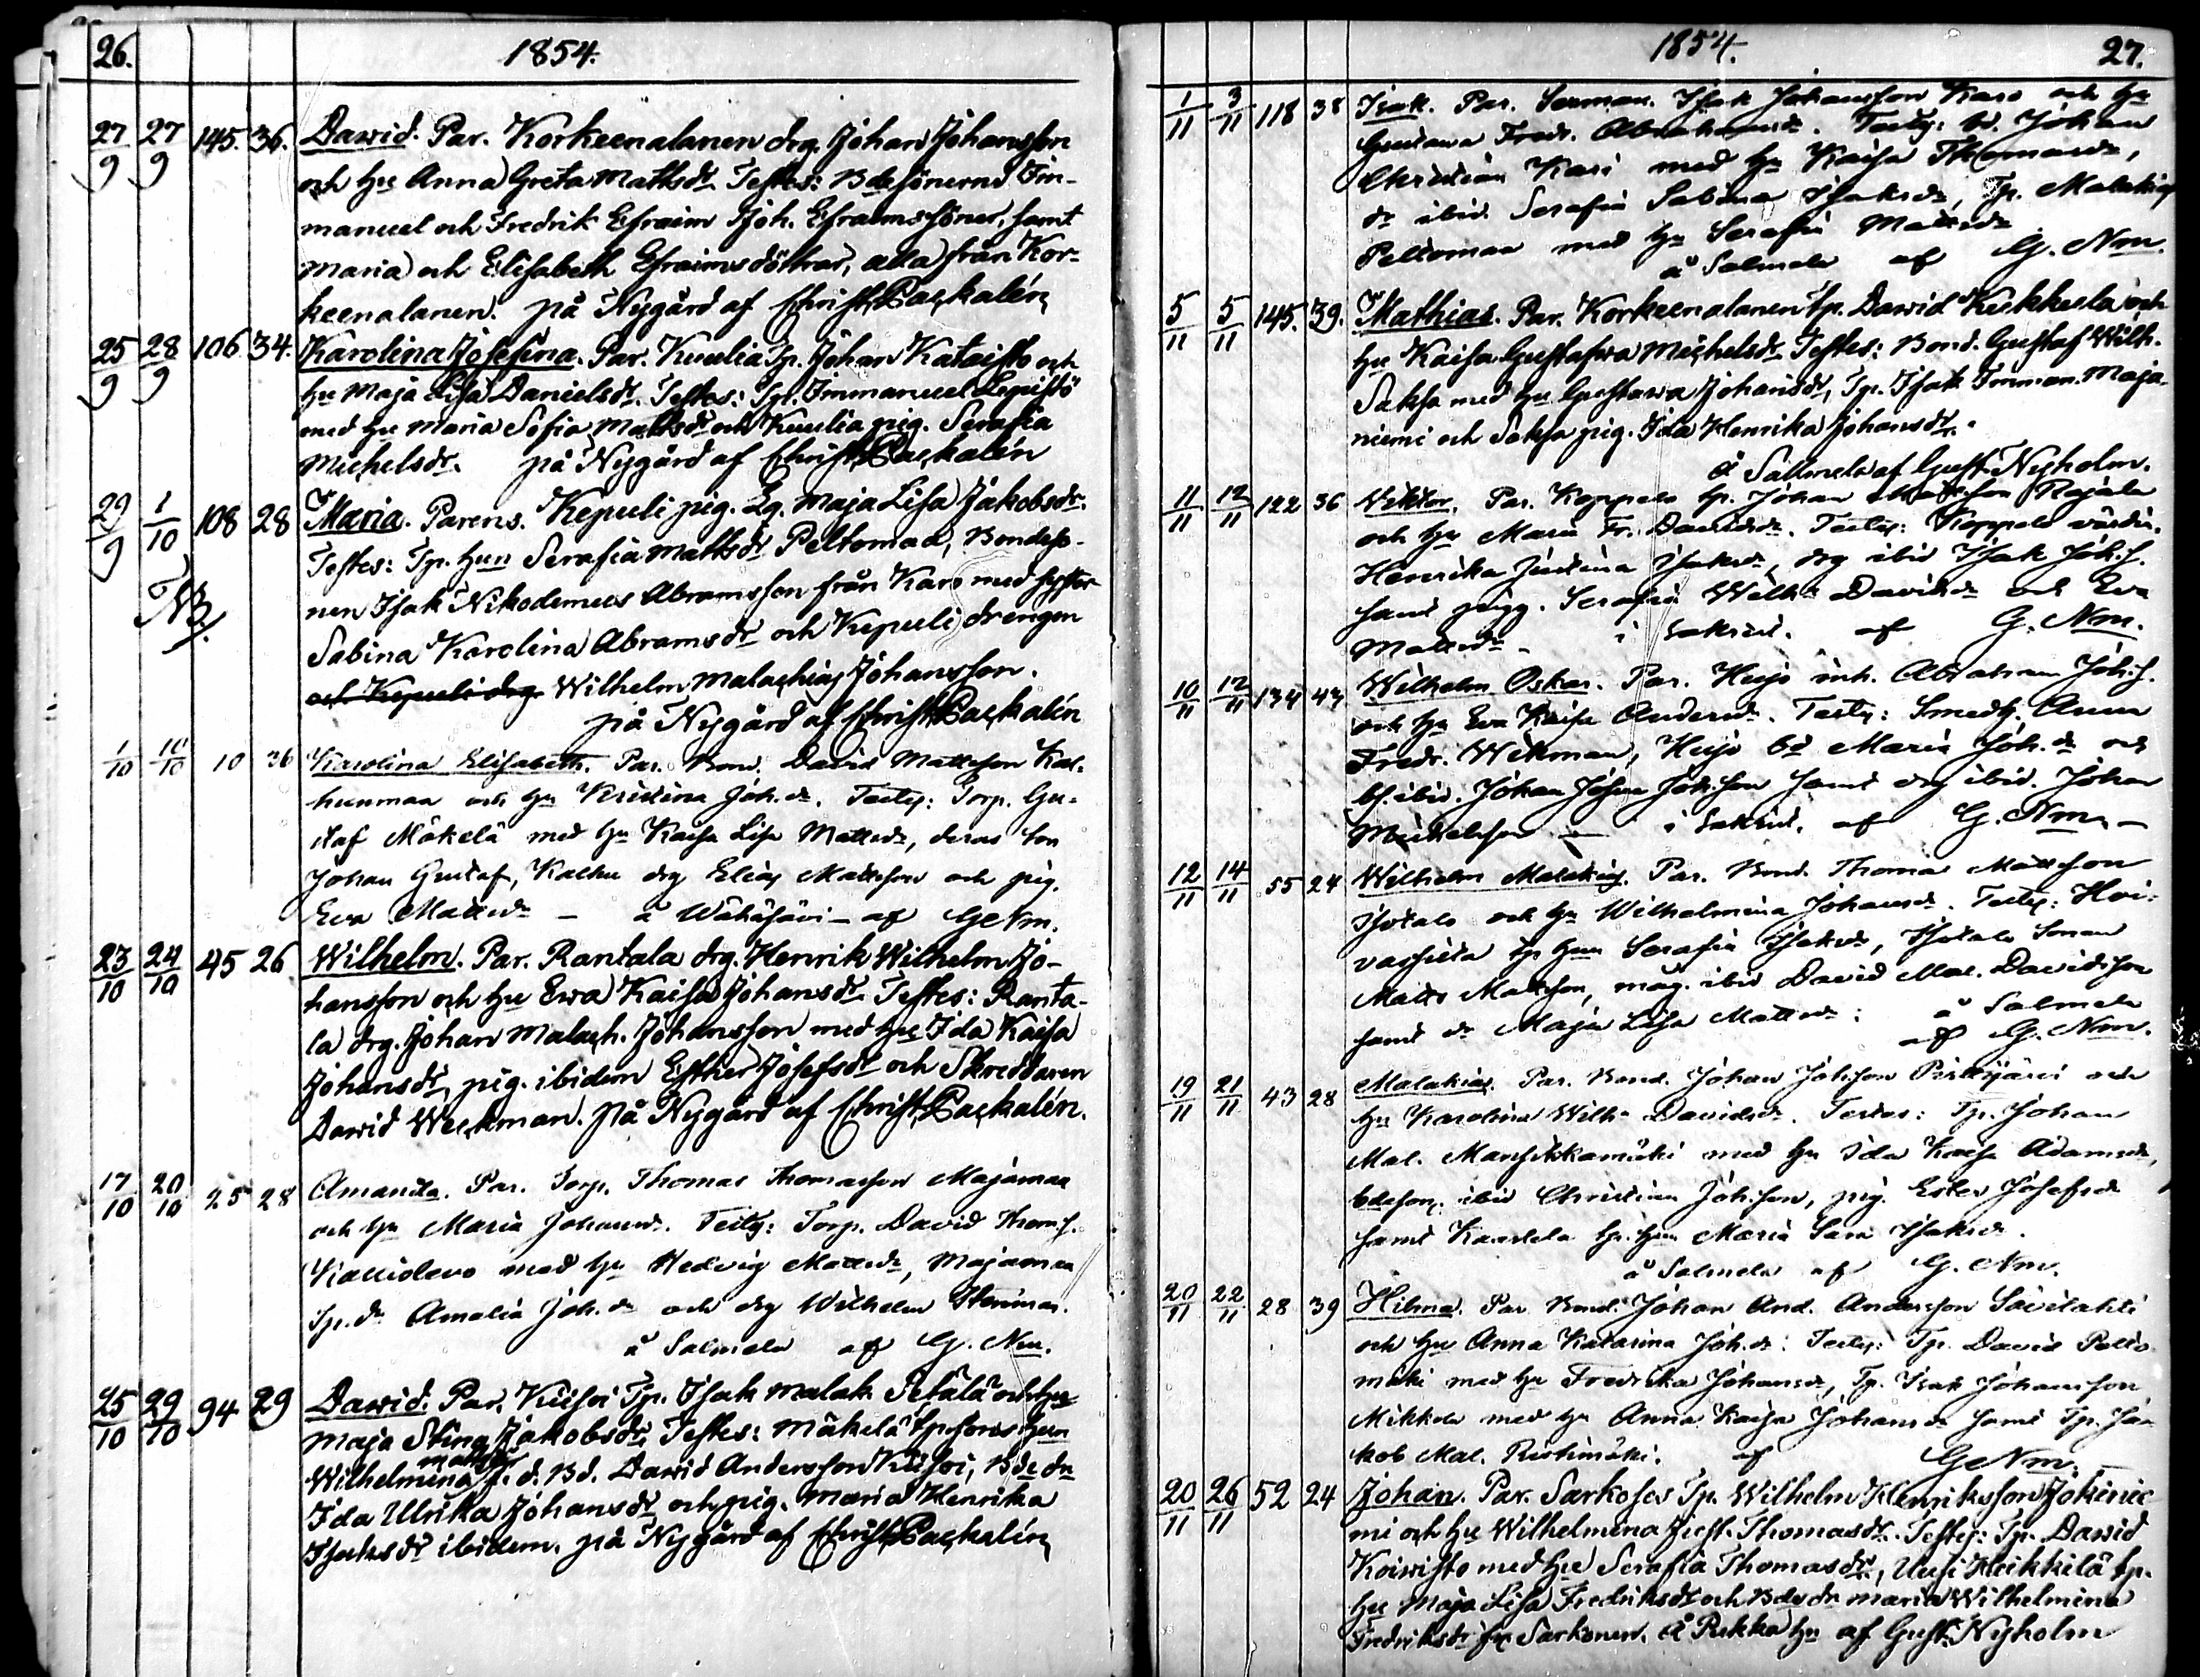 26.
1854.
27/9 27/9 145. 36. Dawid. Par. Korkeenalanen drg. Johan Johansson
och hu Anna Greta Mattsdr. Testes: Bdesönerne Im-
manuel och Fredrik Efraim Joh. Efraimssöner, samt
Maria och Elisabeth Efraimsdöttrar, alla från Kor-
keenalanen. på Nygård af Christ. Packalén
25/9 28/9 106 34. Karolina Josefina. Par. Kuulia Tp. Johan Kataisto och
hu Maja Lisa Danielsdr. Testes: Tp. Immanuel Lepistö
med hu Maria Sofia Mattsdr och Kuulia pig. Serafia
Michelsdr. på Nygård af Christ. Packalén
29/9 1/10 108 28 Maria. Parens. Kepuli pig. Lg. Maja Lisa Jakobsdr.
Testes: Tp. hun Serafia Mattsdr Peltomaa, Bondeso-
NB. nen Isak Nikodemus Abramsson från Karo med syster
Sabina Karolina Abramsdr och Kepuli drengen
och Kepuli drg. Wilhelm Malachias Johansson.
på Nygård af Christ. Packalén
1/10 10/10 10 36 Karolina Elisabeth. Par. Bond. David Mattsson Kal-
hunmaa och hu Kristina Joh.dr. Testes: Torp. Gu-
staf Mäkelä med hu Kaisa Lisa Mattsdr, deras son
Johan Gustaf, Kalhu drg Elias Mattsson och pig.
Eva Mattsdr — å Wähäjärvi — af G Nm.
23/10 24/10 45 26 Wilhelm. Par. Rantala drg. Henrik Wilhelm Jo-
hansson och hu Ewa Kaisa Johansdr. Testes: Ranta-
la drg. Johan Malach. Johansson med hu Ida Kaisa
Johansdr, pig. ibidem Esther Josefsdr och Skreddaren
Dawid Weckman. på Nygård af Christ. Packalén.
17/10 20/10 25 28 Amanda. Par. Torp. Thomas Thomasson Majamaa
och hu Maria Johansdr. Testes: Torp. David Thom.s.
med hu Hedvig Mattsdr, Majamaa
Tp. dr Amalia Joh.dr och drg Wilhelm
å Salmela af G. Nm.
25/10 29/10 94 29 Dawid. Par. Kuisoi Tp. Isak Malak. Setälä och hu
Maja Stina Jakobsdr. Testes: Mäkelä tp. sons hun
Wilhelmina Mattsdr f. d. Bd. Dawid Andersson Kuisoi, Bde dr
Ida Ulrika Johansdr och pig. Maria Henrika
Isaksdr ibidem. på Nygård af Christ. Packalén
1854.
27.
1/11 3/11 118 38 Isak. Par. Isak Johansson Karo och hu
Gustava Fredr. Abrahamsdr. Testes: bd. Johan
Christian Kari med hu Kaisa Thomasdr,
dr ibid. Serafia Sabina Isaksdr, Tp. Malakias
Peltomaa med hu Serafia Mattsdr
å Salmela af G. Nm.
5/11 5/11 145. 39. Mathias. Par. Korkeenalanen Tp. Dawid Kukkula och
hu Kaisa Gustafwa Michelsdr. Testes: Bond. Gustaf Wilh.
Saksa med hu Gustawa Johansdr, Tp. Isak Imman. Maja-
niemi och Saksa pig. Ida Henrika Johansdr.
å Sallmela af Gust. Nyholm.
11/11 12/11 122 36 Viktor. Par. Koppelo tp. Johan Mattsson Rajala
och hu Maria Fr. Davidsdr. Testes: Koppelo värdin.
Henrika Justina Isaksdr, drg ibid Isak Joh.s.
samt pigg. Serafia Wilh. Davidsdr och Eva
Mattsdr — i Sakrist. af G. Nm.
10/11 12/11 134 43 Wilhelm Oskar. Par. Heijo inh. Abraham Joh.s.
och hu Eva Kaisa Andersdr. Testes: Smedh. Anna
Fredr. Wekman, Heijo bd Maria Joh.dr och
bs. ibid. Johan Joh.son samt drg ibid. Johan
Mickelsson — i Sakrist. af G. Nm. —
12/11 14/11 55 24 Wilhelm Malakias. Par. Bond. Thomas Mattsson
Isotalo och hu Wilhelmina Johansdr. Testes: Hoi-
vassilta tp hun Serafia Isaksdr, Isotalo sonen
Matts Mattsson, måg. ibid David Mal. Davidsson
samt dr Maja Lisa Mattsdr: å Salmela
af G. Nm.
19/11 21/11 43 28 Malakias. Par. Bond. Johan Johsson Pitkäjärvi och
hu Karolina Wilh. Davidsdr. Testes: Tp. Johan
Mal. Mansikkamäki med hu Ida Kaisa Adamsdr,
bdeson. ibid Christian Joh.son, pig. Ester Josefsdr
samt Kaskela tp. hun Maria Sara Isaksdr.
å Salmela af G. Nm.
20/11 22/11 28 39 Hilma. Par. Bond. Johan And. Andersson Savilahti
och hu Anna Katarina Joh.dr. Testes: Tp. David Pelto-
mäki med hu Fredrika Johansdr, Tp. Isak Johansson
Mikkola med hu Anna Kaisa Johansdr samt Tp. Ja-
kob Mal. Ristimäki. af G Nm. —
20/11 26/11 52 24 Johan. Par. Sarkoses Tp. Wilhelm Henriksson Jokinie-
mi och hu Wilhelmina Just. Thomasdr. Testes: Tp. Dawid
Koiwisto med hu Serafia Thomasdr, Uusi Heikkilä tp.
hu Maja Lisa Fredriksdr och Bde dr Maria Wilhelmina
Fredriksdr fr. Sarkonen. å Pukka hn af Gust. Nyholm